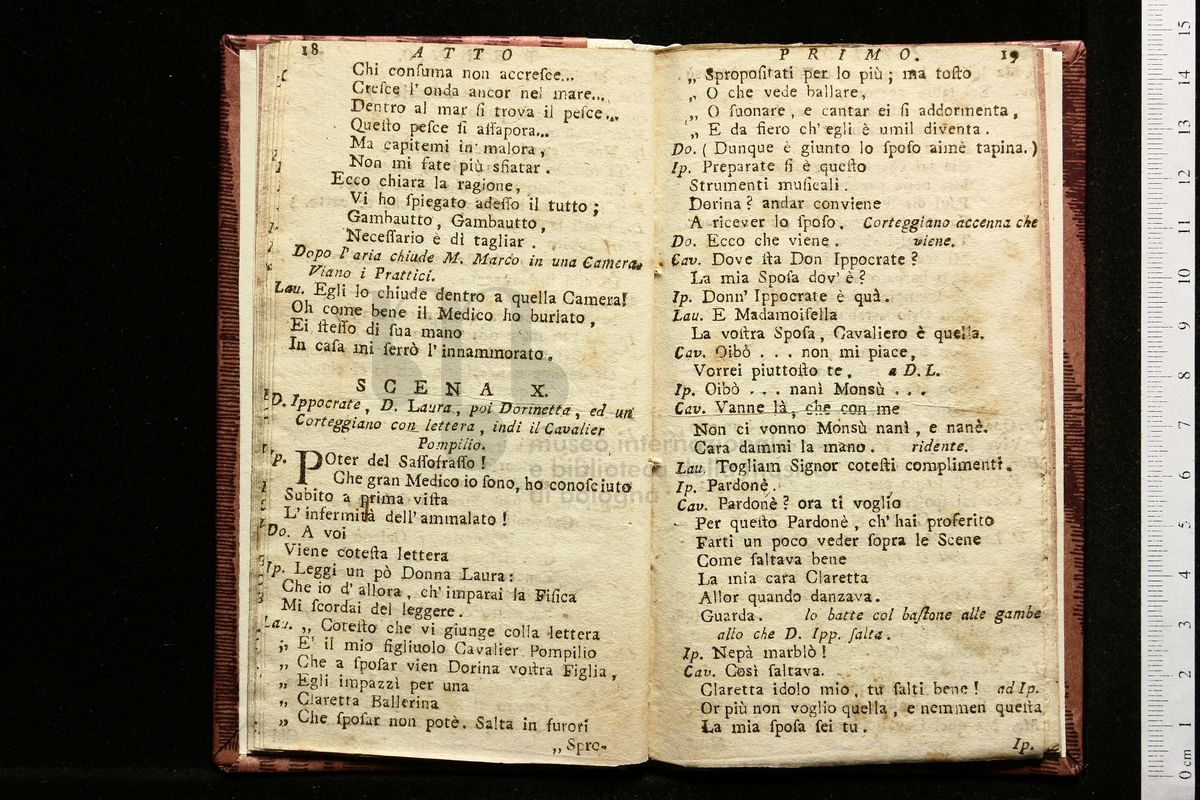 18 ATTO
Chi conſuma non accreſce...
Creſce l' onda ancor nel mare...
Dentro al mar ſi trova il peſce...
Queſto peſce ſi aſſapora...
Ma capitemi in malora,
Non mi fate più sfiatar.
Ecco chiara la ragione,
Vi ho ſpiegato adeſſo il tutto;
Gambautto, Gambautto,
Neceſſario è di tagliar.
Dopo l' aria chiude M. Marco in una Camera.
Viano i Prattici.
Lau. Egli lo chiude dentro a quella Camera!
Oh come bene il Medico ho burlato,
Ei ſteſſo di ſua mano
In caſa mi ſerrò l' innammorato.
SCENA X.
D. Ippocrate, D. Laura, poi Dorinetta, ed un
Corteggiano con lettera, indi il Cavalier
Pompilio.
Ip. POter del Saſſofraſſo!
Che gran Medico io ſono, ho conoſciuto
Subito a prima viſta
L' infermità dell' ammalato!
Do. A voi
Viene coteſta lettera
Ip. Leggi un pò Donna Laura:
Che io d' allora, ch' imparai la Fiſica
Mi ſcordai del leggere.
Lau. „ Coteſto che vi giunge colla lettera
„ E' il mio figliuolo Cavalier Pompilio
„ Che a ſpoſar vien Dorina voſtra Figlia,
„ Egli impazzì per una
„ Claretta Ballerina
„ Che ſpoſar non potè. Salta in furori
„ Spro-
PRIMO. 19
„ Spropoſitati per lo più; ma toſto
„ O che vede ballare,
„ O ſuonare, e cantar ei ſi addormenta,
„ E da fiero ch' egli è umil diventa.
Do. (Dunque è giunto lo ſpoſo aimè tapina.)
Ip. Preparate ſi è queſto
Strumenti muſicali.
Dorina? andar conviene
A ricever lo ſpoſo. Corteggiano accenna che
Do. Ecco che viene. viene.
Cav. Dove ſta Don Ippocrate?
La mia Spoſa dov' è?
Ip. Donn' Ippocrate è quà.
Lau. E Madamoiſella
La voſtra Spoſa, Cavaliero è quella.
Cav. Oibò... non mi piace,
Vorrei piuttoſto te. a D. L.
Ip. Oibò... nanì Monsù...
Cav. Vanne là, che con me
Non ci vonno Monsù nanì, e nanè.
Cara dammi la mano. ridente.
Lau. Togliam Signor coteſti complimenti.
Ip. Pardonè.
Cav. Pardonè? ora ti voglio
Per queſto Pardonè, ch' hai proferito
Farti un poco veder ſopra le Scene
Come ſaltava bene
La mia cara Claretta
Allor quando danzava.
Guarda. lo batte col baſtone alle gambe
allo che D. Ipp. ſalta.
Ip. Nepà marblò!
Cav. Così ſaltava.
Claretta idolo mio, tu ſalti bene! ad Ip.
Or più non voglio quella, e nemmen queſta
La mia ſpoſa ſei tu.
Ip.
museo internazionale
e biblioteca della musica
di bologna
0 cm 1 2 3 4 5 6 7 8 9 10 11 12 13 14 15